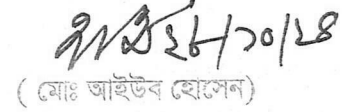 ২৮/১০/২৪
( মোঃ আইউব হোসেন)